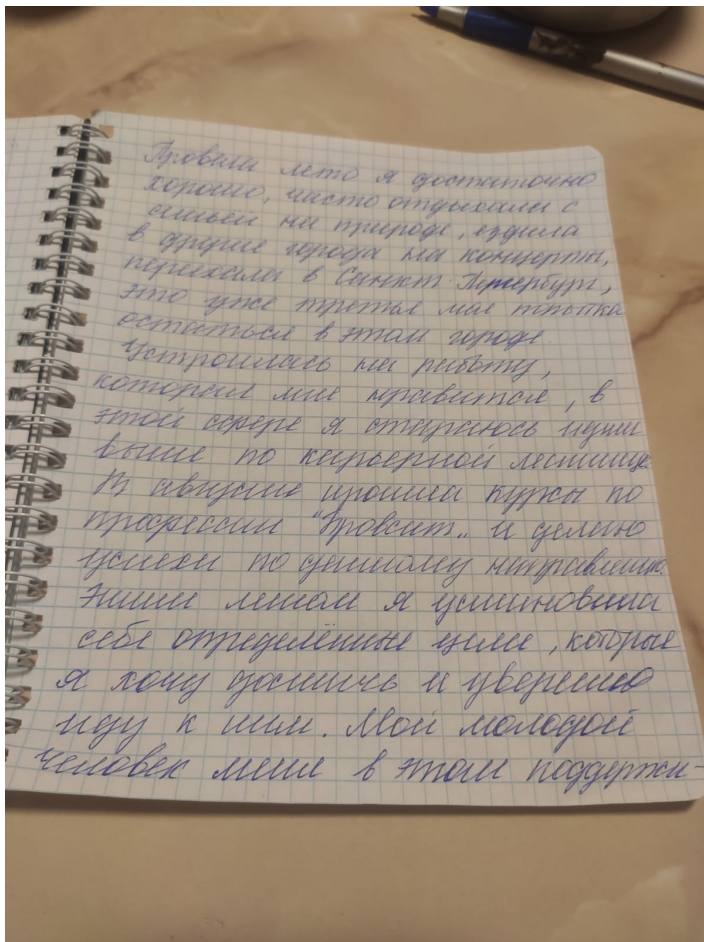 Провела лето я достаточно
хорошо, часто отдыхала с
семьёй на природе, ездила
в другие города на концерты,
переехала в Санкт-Петербург,
это уже третья моя попытка
остаться в этом городе.
Устроилась на работу,
которая мне нравится, в
этой сфере я стараюсь идти
выше по карьерной лестнице.
В августе прошла курсы по
профессии "Бровист" и делаю
успехи по данному направлению.
Этим летом я установила
себе определённые цели, которые
я хочу достичь и уверенно
иду к ним. Мой молодой
человек меня в этом поддержи-